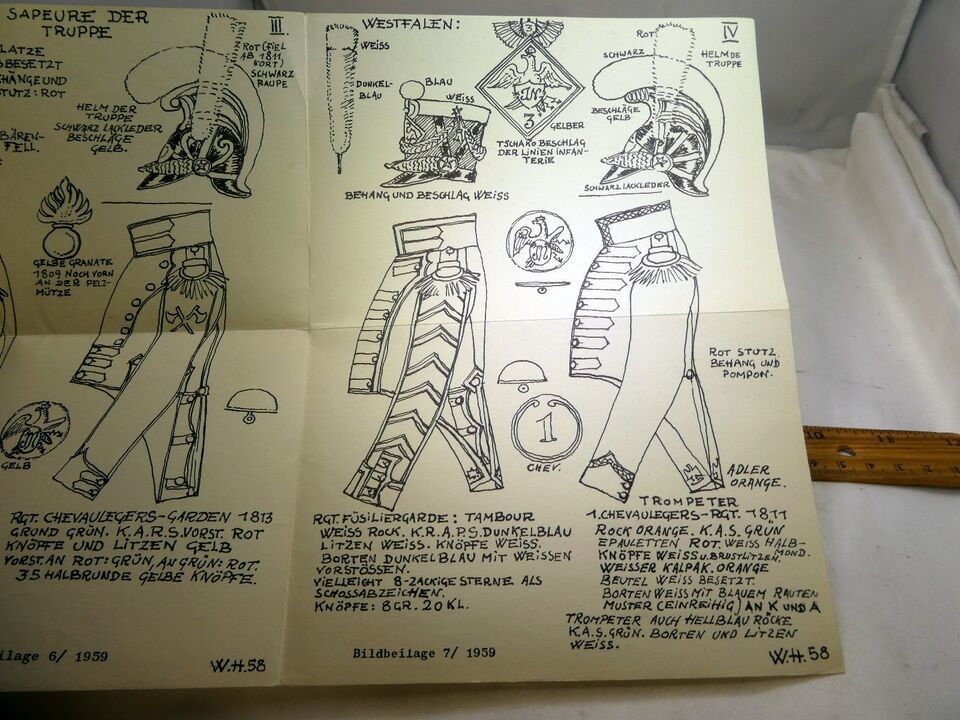 SAPEURE DER
TRUPPE
III.
LATZE
BESETZT
HÄNGE UND
STUTZ: ROT
BÄREN-
FELL.
ROT (FIEL
AB 1811
FORT)
SCHWARZ
RAUPE
HELM DER
TRUPPE
SCHWARZ LACKLEDER
BESCHLÄGE
GELB.
GELBE GRANATE
1809 NOCH VORN
AN DER PELZ-
MÜTZE
GELB
RGT. CHEVAULEGERS-GARDEN 1813
GRUND GRÜN. K.A.R.S. VORST. ROT
KNÖPFE UND LITZEN GELB
VORST. AN ROT: GRÜN, AN GRÜN: ROT.
35 HALBRUNDE GELBE KNÖPFE.
ilage 6/ 1959
W.H. 58
WESTFALEN:
WEISS
DUNKEL-
BLAU
BLAU
WEISS
3
3
GELBER
TSCHAKO BESCHLAG
DER LINIEN INFAN-
TERIE
BEHANG UND BESCHLAG WEISS
1
CHEV.
RGT. FÜSILIERGARDE: TAMBOUR
WEISS ROCK. K.R.A.P.S. DUNKELBLAU
LITZEN WEISS. KNÖPFE WEISS.
BORTEN DUNKELBLAU MIT WEISSEN
VORSTÖSSEN.
VIELLEICHT 8-ZACKIGE STERNE ALS
SCHOSSABZEICHEN.
KNÖPFE: 8 GR. 20 KL.
Bildbeilage 7/ 1959
IV
ROT
SCHWARZ
HELM DE
TRUPPE
BESCHLÄGE
GELB
SCHWARZ LACKLEDER
ROT STUTZ,
BEHANG UND
POMPON.
ADLER
ORANGE.
TROMPETER
1. CHEVAULEGERS-RGT. 1811
ROCK ORANGE. K.A.S. GRÜN
EPAULETTEN ROT. WEISS HALB-
MOND.
KNÖPFE WEISS U. BRUSTLITZEN
WEISSER KALPAK. ORANGE
BEUTEL WEISS BESETZT.
BORTEN WEISS MIT BLAUEM RAUTEN
MUSTER (EINREIHIG) AN K UND A
TROMPETER AUCH HELLBLAU RÖCKE
K.A.S. GRÜN. BORTEN UND LITZEN
WEISS.
W.H. 58
10
11